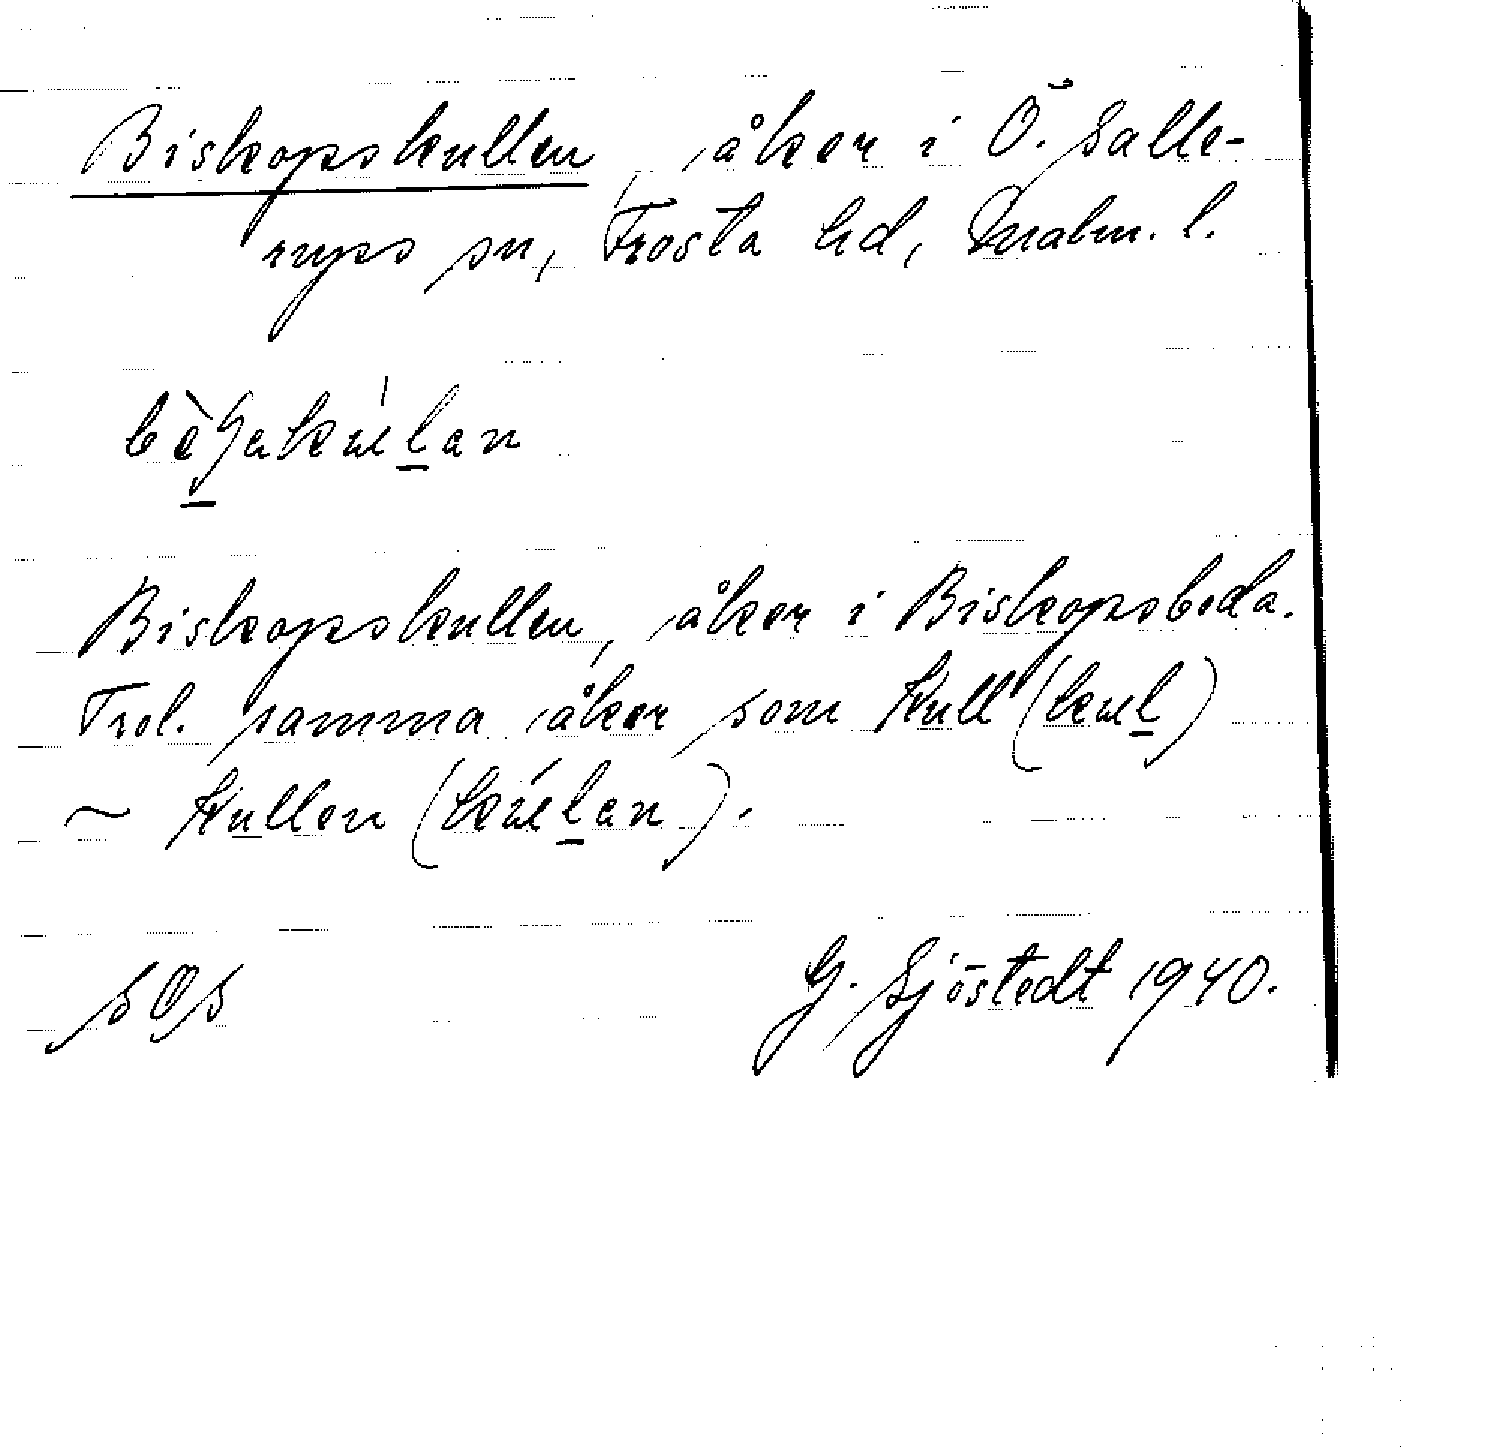 Biskopskullen, åker i Ö. Salle-
rups sn, Frosta hd, Malm. l.
Biskopskullen, åker i Biskopsboda.
Trol. samma åker som Kull (kul)
~ Kullen (kúlan).
G. Sjöstedt 1940.